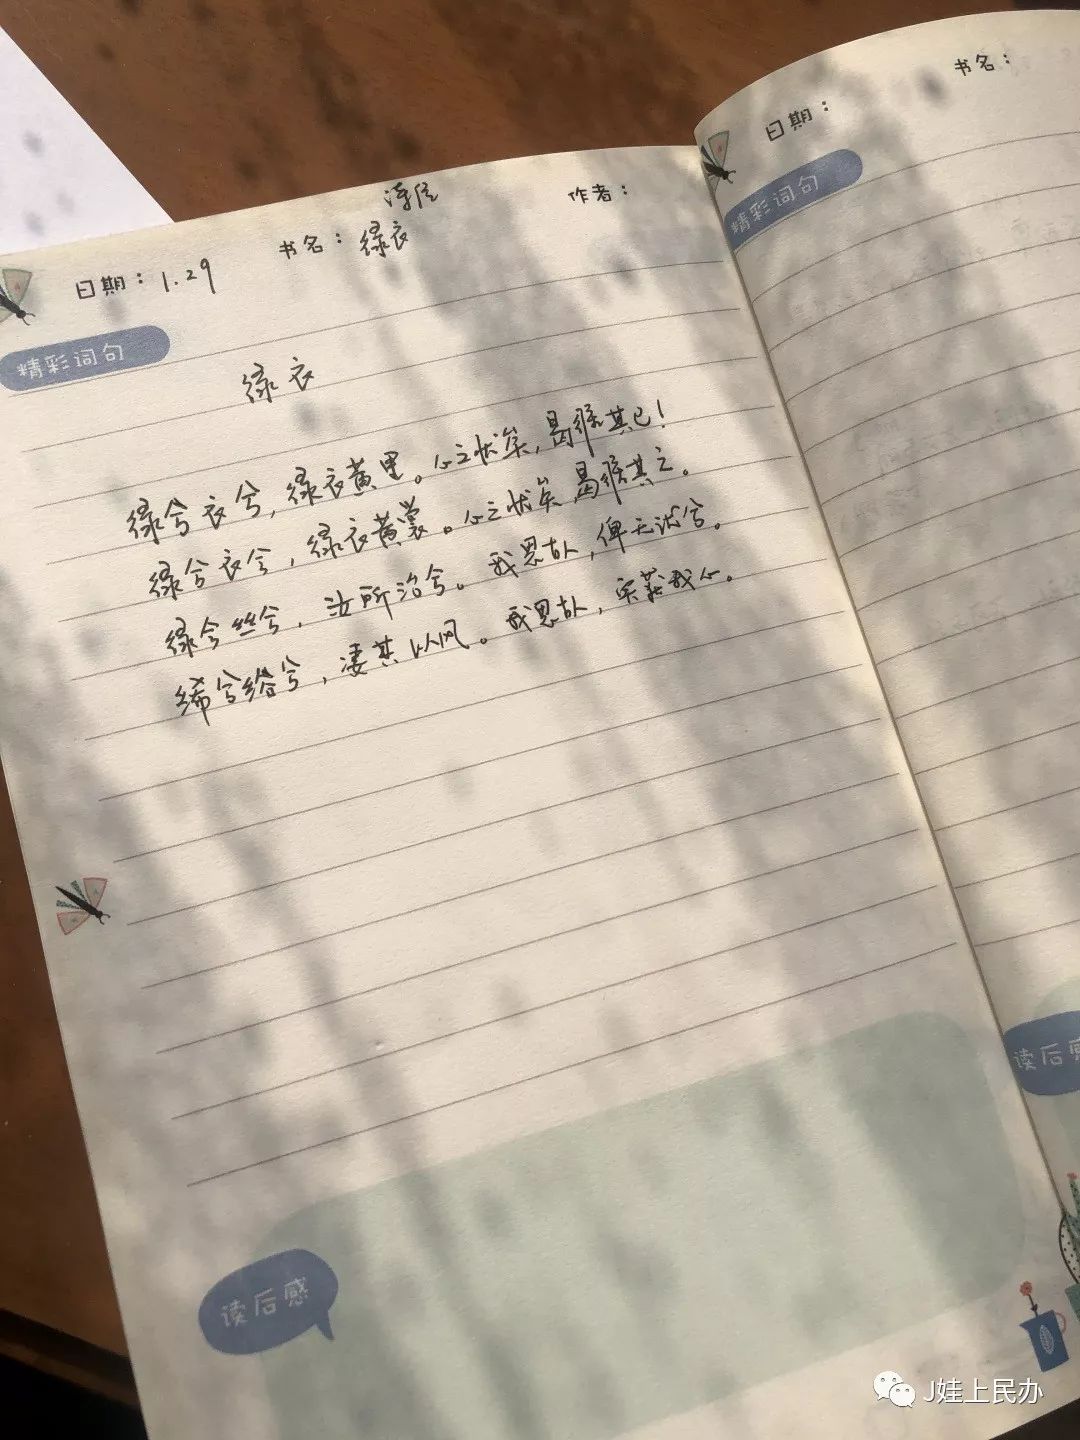 书名：
日期：
精彩词句
作者：
书名：绿衣
日期：1.29
精彩词句
绿衣
绿兮衣兮，绿衣黄里。心之忧矣，曷维其已！
绿兮衣兮，绿衣黄裳。心之忧矣，曷维其亡。
绿兮丝兮，汝所治兮。我思古人，俾无訧兮。
絺兮绤兮，凄其以风。我思古人，实获我心。
读后感
读后感
J娃上民办